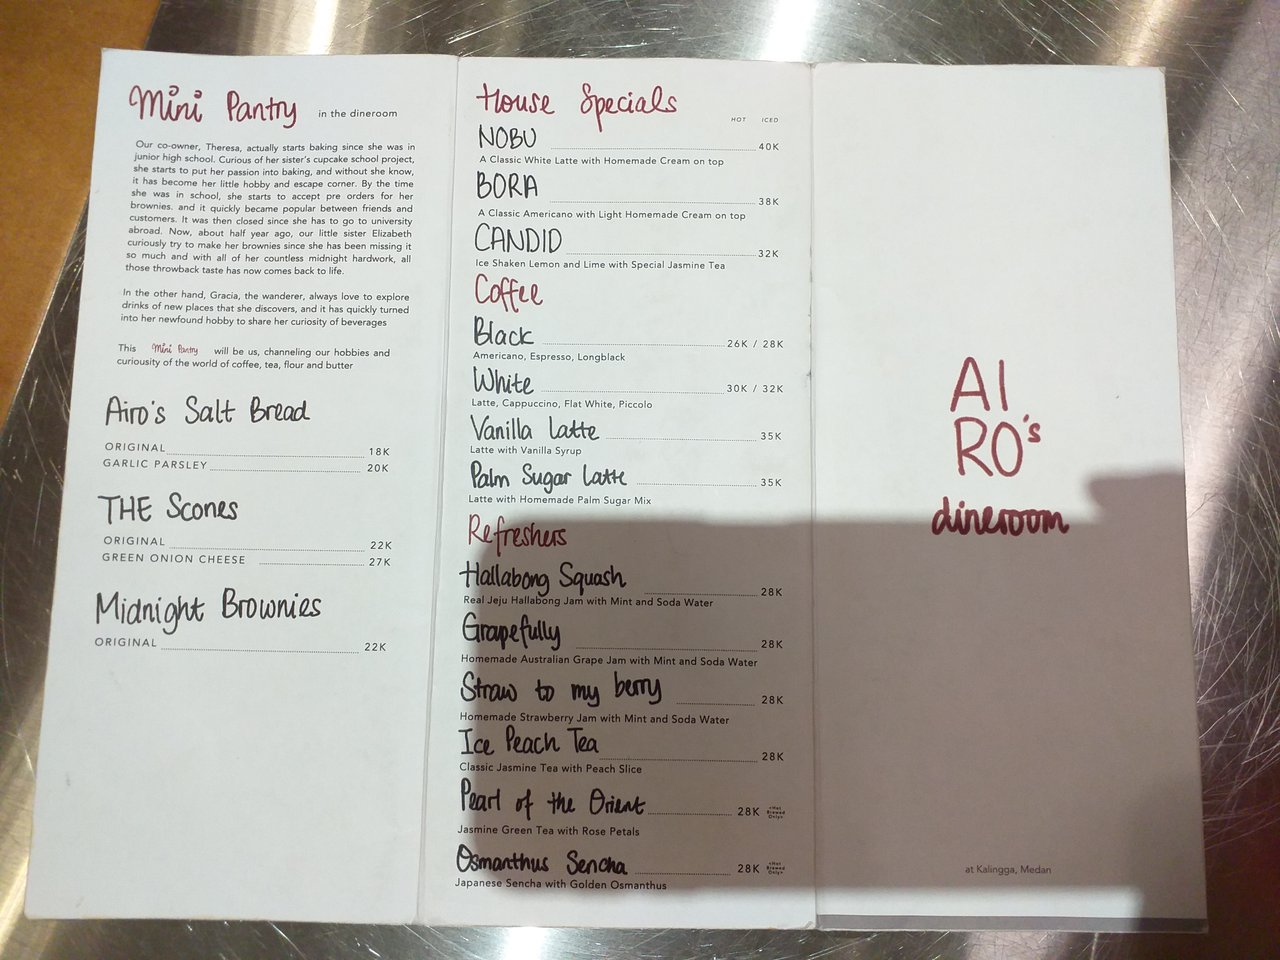 Mini Pantry in the dineroom
Our co-owner, Theresa, actually starts baking since she was in
junior high school. Curious of her sister's cupcake school project,
she starts to put her passion into baking, and without she know,
it has become her little hobby and escape corner. By the time
she was in school, she starts to accept pre orders for her
brownies. and it quickly became popular between friends and
customers. It was then closed since she has to go to university
abroad. Now, about half year ago, our little sister Elizabeth
curiously try to make her brownies since she has been missing it
so much and with all of her countless midnight hardwork, all
those throwback taste has now comes back to life.
In the other hand, Gracia, the wanderer, always love to explore
drinks of new places that she discovers, and it has quickly turned
into her newfound hobby to share her curiosity of beverages
This Mini Pantry will be us, channeling our hobbies and
curiousity of the world of coffee, tea, flour and butter
Airo's Salt Bread
ORIGINAL 18K
GARLIC PARSLEY 20K
THE Scones
ORIGINAL 22K
GREEN ONION CHEESE 27K
Midnight Brownies
ORIGINAL 22K
House Specials
HOT ICED
NOBU 40K
A Classic White Latte with Homemade Cream on top
BORA 38K
A Classic Americano with Light Homemade Cream on top
CANDID 32K
Ice Shaken Lemon and Lime with Special Jasmine Tea
Coffee
Black 26K / 28K
Americano, Espresso, Longblack
White 30K / 32K
Latte, Cappuccino, Flat White, Piccolo
Vanilla Latte 35K
Latte with Vanilla Syrup
Palm Sugar Latte 35K
Latte with Homemade Palm Sugar Mix
Refreshers
Hallabong Squash 28K
Real Jeju Hallabong Jam with Mint and Soda Water
Grapefully 28K
Homemade Australian Grape Jam with Mint and Soda Water
Straw to my berry 28K
Homemade Strawberry Jam with Mint and Soda Water
Ice Peach Tea 28K
Classic Jasmine Tea with Peach Slice
Pearl of the Orient 28K <Hot
Brewed
Only>
Jasmine Green Tea with Rose Petals
Osmanthus Sencha 28K <Hot
Brewed
Only>
Japanese Sencha with Golden Osmanthus
AI
RO's
dineroom
at Kalingga, Medan